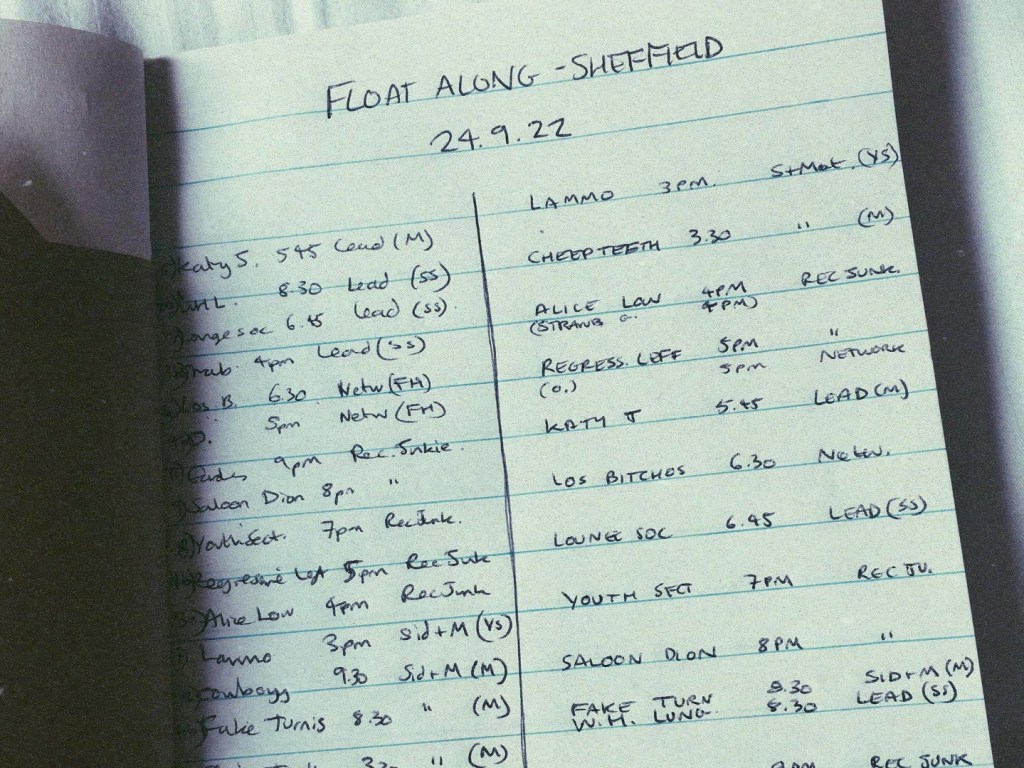 FLOAT ALONG - SHEFFIELD
24.9.22
Katy J. 545 Lead (M)
WHL. 8.30 Lead (SS)
Lounge soc 6.45 Lead (SS).
4pm Lead (SS)
Los B. 6.30 Netw (FH)
5pm Netw (FH)
9pm Rec. Junkie.
Saloon Dion 8pm "
Youth Sect. 7pm Rec Junk.
Regressive Left 5pm Rec Junk
Alice Low 4pm Rec Junk
Lammo 3pm Sid + M (YS)
Cowboyy 9.30 Sid + M (M)
Fake Turnis 8.30 " (M)
" (M)
LAMMO 3PM. S+Mat. (YS)
CHEEPTEETH 3.30 " (M)
ALICE LOW 4PM REC JUNK.
4PM)
REGRESS. LEFT 5PM "
(O.) 5PM NETWORK
KATY J 5.45 LEAD (M)
LOS BITCHOS 6.30 Netw.
LOUNGE SOC 6.45 LEAD (SS)
YOUTH SECT 7PM REC JU.
SALOON DION 8PM "
FAKE TURN 8.30 SID+M (M)
W.H. LUNG. 8.30 LEAD (SS)
9PM REC JUNK